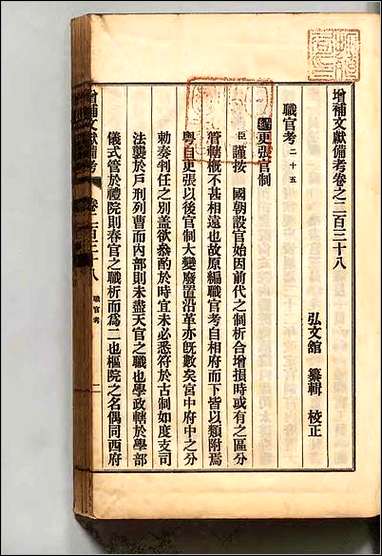 增補文獻備考卷之二百三十八
弘文館 纂輯 校正
職官考二十五
續更張官制
臣謹按 國朝設官始因前代之制析合增損時或有之區分
管轄槪不甚相遠也故原編職官考自相府而下皆以類附焉
粤自更張以後官制大變廢置沿革亦旣數矣宮中府中之分
勅奏判任之別盖欲叅酌於時宜未必悉符於古制如度支司
法襲於戶刑列曹而內部則未盡天官之職也學政轄於學部
儀式管於禮院則春官之職析而爲二也樞院之名偶同西府
增補文獻備考 卷二百三十八 職官考 一